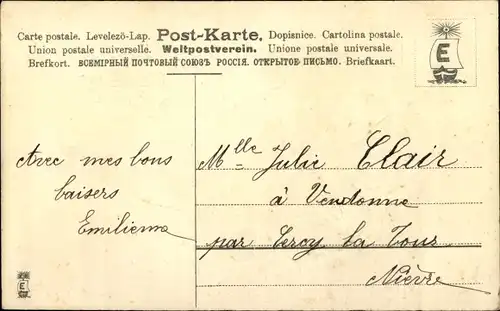 Carte postale. Levelezö-Lap. Post-Karte. Dopisnice. Cartolina postale.
Union postale universelle. Weltpostverein. Unione postale universale.
Brefkort. ВСЕМІРНЫЙ ПОЧТОВЫЙ СОЮЗЪ РОССІЯ. ОТКРЫТОЕ ПИСЬМО. Briefkaart.
E
Avec mes bons
baisers
Emilienne
Mlle Julie Clair
à Vendonne
par Cercy la Tour
Nièvre
E